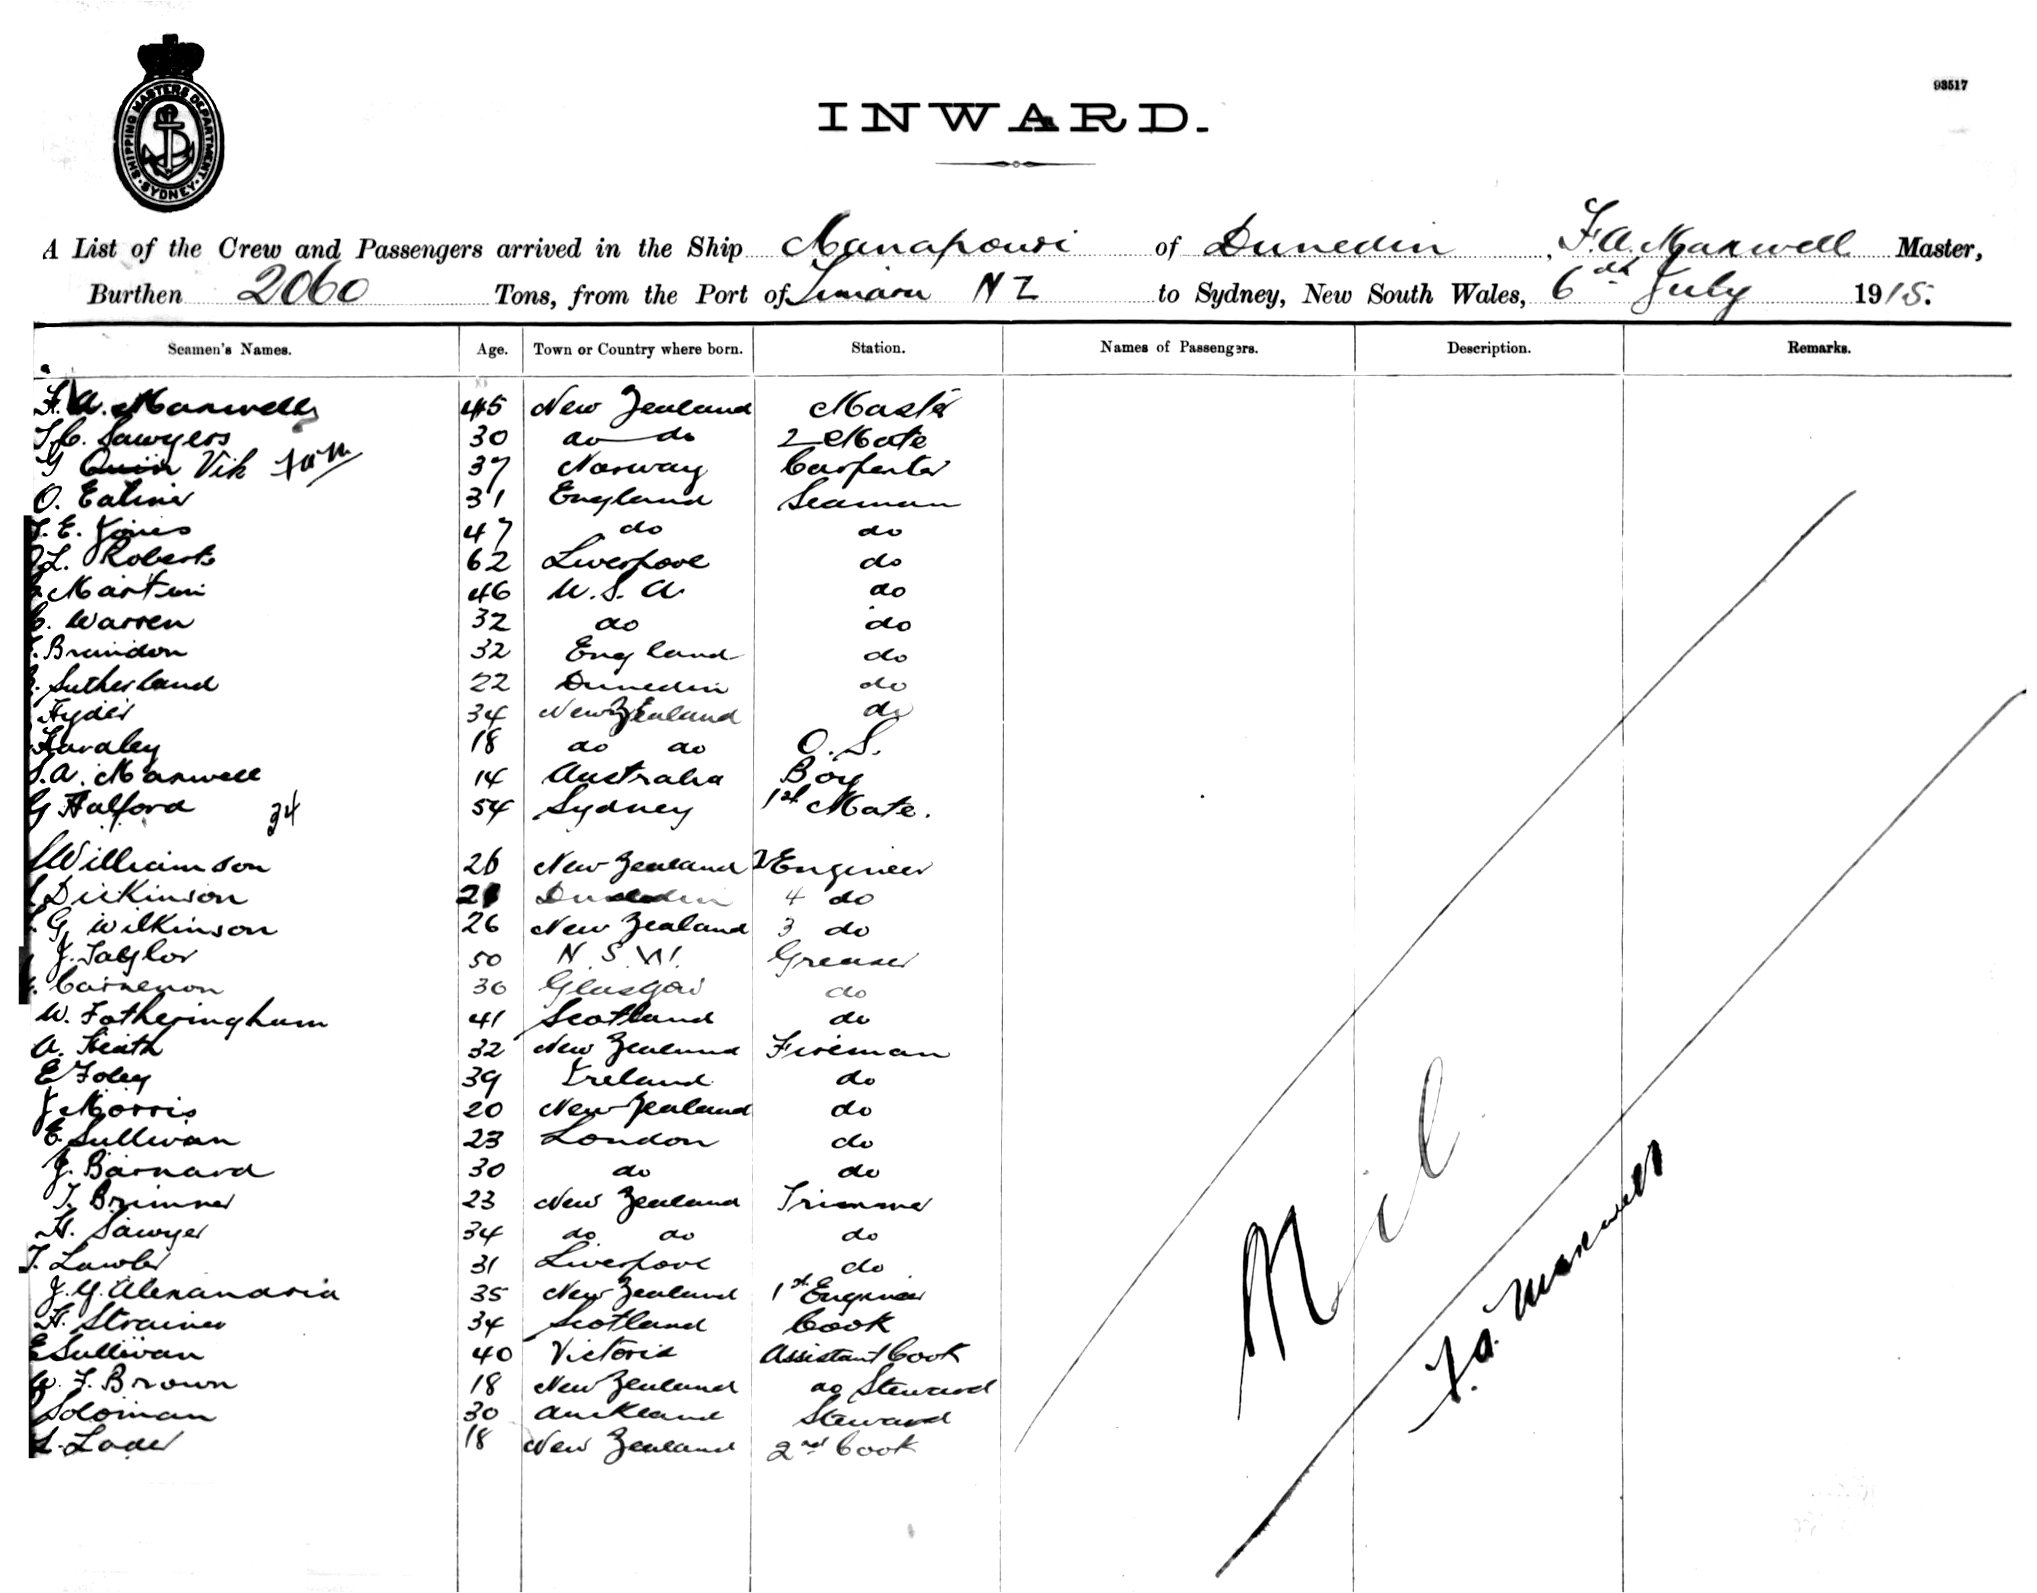 SHIPPING MASTERS DEPARTMENT
SYDNEY
93517
INWARD.
A List of the Crew and Passengers arrived in the Ship Manapouri of Dunedin, F.A. Maxwell Master,
Burthen 2060 Tons, from the Port of Timaru NZ to Sydney, New South Wales, 6th July 1915.
Seamen's Names. Age. Town or Country where born. Station. Names of Passengers. Description. Remarks.
F. A. Maxwell 45 New Zealand Master
Sawyers 30 do do 2 Mate
G Vik 37 Norway Carpenter
O. 31 England Seaman
E. Jones 47 do do
L. Roberts 62 Liverpool do
Martin 46 U.S.A. do
C. Warren 32 do do
Brandon 32 England do
Sutherland 22 Dunedin do
Hyder 34 New Zealand do
Hardley 18 do do O.S.
A. Maxwell 14 Australia Boy
G Halford 34 54 Sydney 1st Mate.
Williamson 26 New Zealand 2 Engineer
Dickinson Dunedin 4 do
G. Wilkinson 26 New Zealand 3 do
J. Taylor 50 N.S.W. Greaser
Glasgow do
W. Fotheringham 41 Scotland do
A. Heath 32 New Zealand Fireman
E Foley 39 Ireland do
J Morris 20 New Zealand do
E. Sullivan 23 London do
J. Barnard 30 do do
T. Brimner 23 New Zealand Trimmer
H. Sawyer 34 do do do
T. Lawler 31 Liverpool do
J. G. Alexandria 35 New Zealand 1st Engineer
H. Strainer 34 Scotland Cook
E Sullivan 40 Victoria Assistant Cook
W. F. Brown 18 New Zealand do Steward
Soloman 30 Auckland Steward
Lader 18 New Zealand 2nd Cook
Nil
F.A. Maxwell